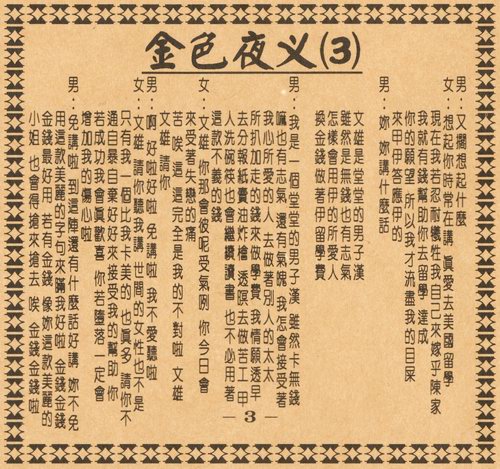 金色夜义(3)
男：又擱想起什麼
女：想起你時常在講 真愛去美國留學
現在我若忍耐犧牲我自己來嫁乎陳家
我就有錢幫助你去留學 達成
你的願望 所以我才流盡我的目屎
來甲伊答應伊的
男：妳 妳講什麼話
文雄是堂堂的男子漢
雖然是無錢也有志氣
怎樣會用伊的所愛人
換金錢做著伊留學費
男：我是一個堂堂的男子漢 雖然卡無錢
嘛也有志氣 還有氣魄 我怎會接受著
我心所愛的人 去做著別人的太太
所扒加走的錢來做學費 我情願透早
去分報紙賣油炸檜 透暝去做苦工 甲
人洗碗筷也會繼續讀書 也不必用著
這款不義的錢
女：文雄 你那會彼呢受氣咧 你今日會
來受著失戀的痛
苦 唉 這 這完全是我的不對啦 文雄
文雄 請你
男：啊 好啦好啦 免講啦 我不愛聽啦
女：文雄 請你聽我講 世間的女性也不是
只有我一個 比我卡美的也真多 請你不
通自暴自棄 好好來接受我的幫助 你
若成功我會真歡喜 你若墮落一定會
增加我的傷心啦
男：免講啦 到這陣還有什麼話好講 妳不免
用這款美麗的字句來瞞我好啦 金錢金錢
金錢最好用 若有金錢 像妳這款美麗的
小姐 也會得搶來搶去 唉 金錢 金錢啦
－3－